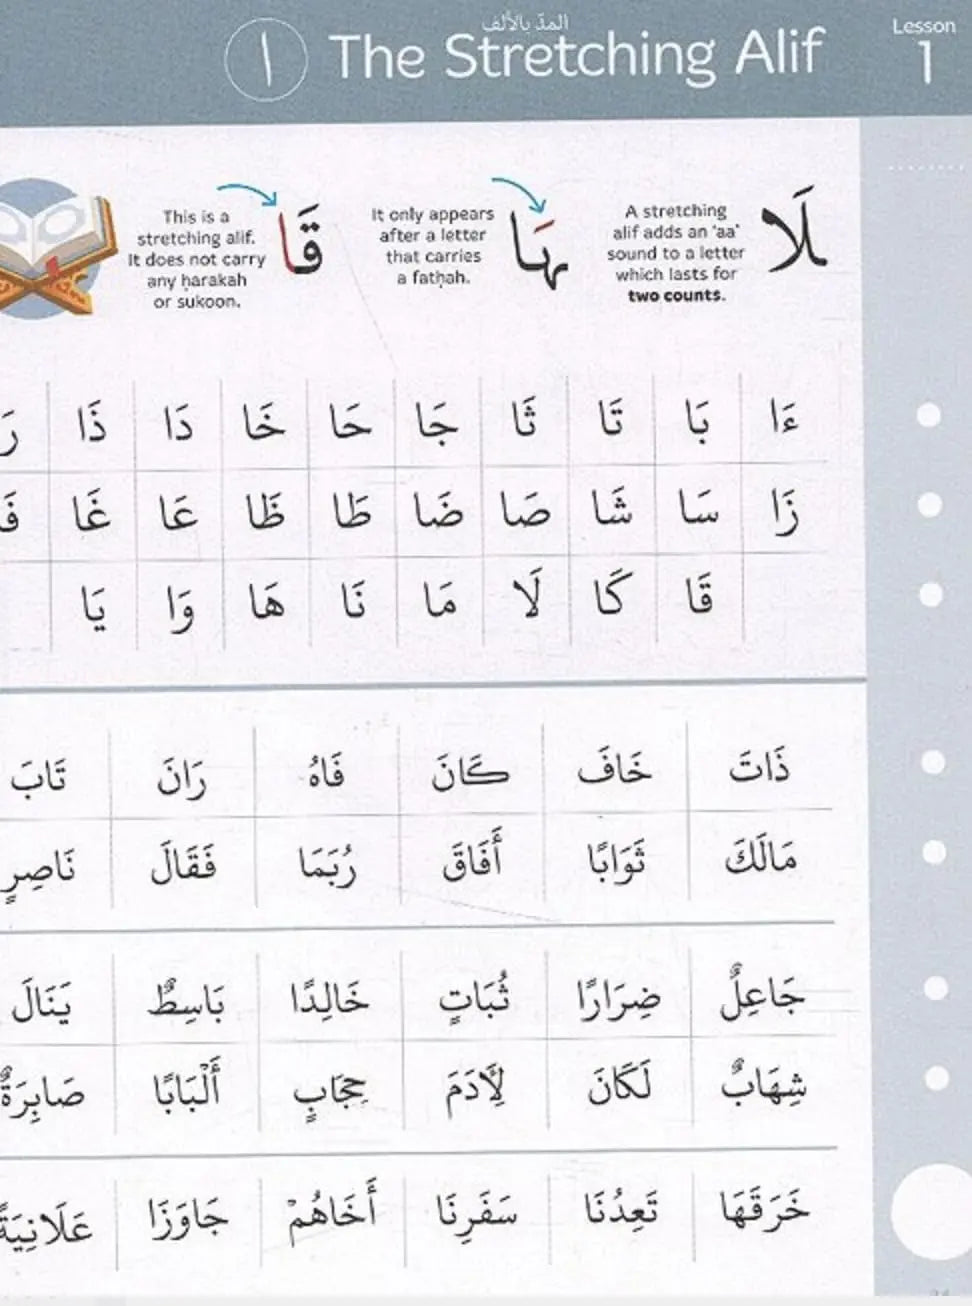 المدّ بالألف
١ The Stretching Alif
Lesson
1
لَا
A stretching
alif adds an 'aa'
sound to a letter
which lasts for
two counts.
هَا
It only appears
after a letter
that carries
a fatḥah.
قَا
This is a
stretching alif.
It does not carry
any ḥarakah
or sukoon.
ءَا بَا تَا ثَا جَا حَا خَا دَا ذَا
زَا سَا شَا صَا ضَا طَا ظَا عَا غَا
قَا كَا لَا مَا نَا هَا وَا يَا
ذَاتَ خَافَ كَانَ فَاهُ رَانَ تَابَ
مَالَكَ ثَوَابًا أَفَاقَ رُبَمَا فَقَالَ نَاصِرٍ
جَاعِلٌ ضِرَارًا ثُبَاتٍ خَالِدًا بَاسِطٌ يَنَالَ
شِهَابٌ لَكَانَ لِأَدَمَ حِجَابٍ أَلْبَابًا صَابِرَةٌ
خَرَقَهَا تَعِدُنَا سَفَرِنَا أَخَاهُمْ جَاوَزَا عَلَانِيَةً